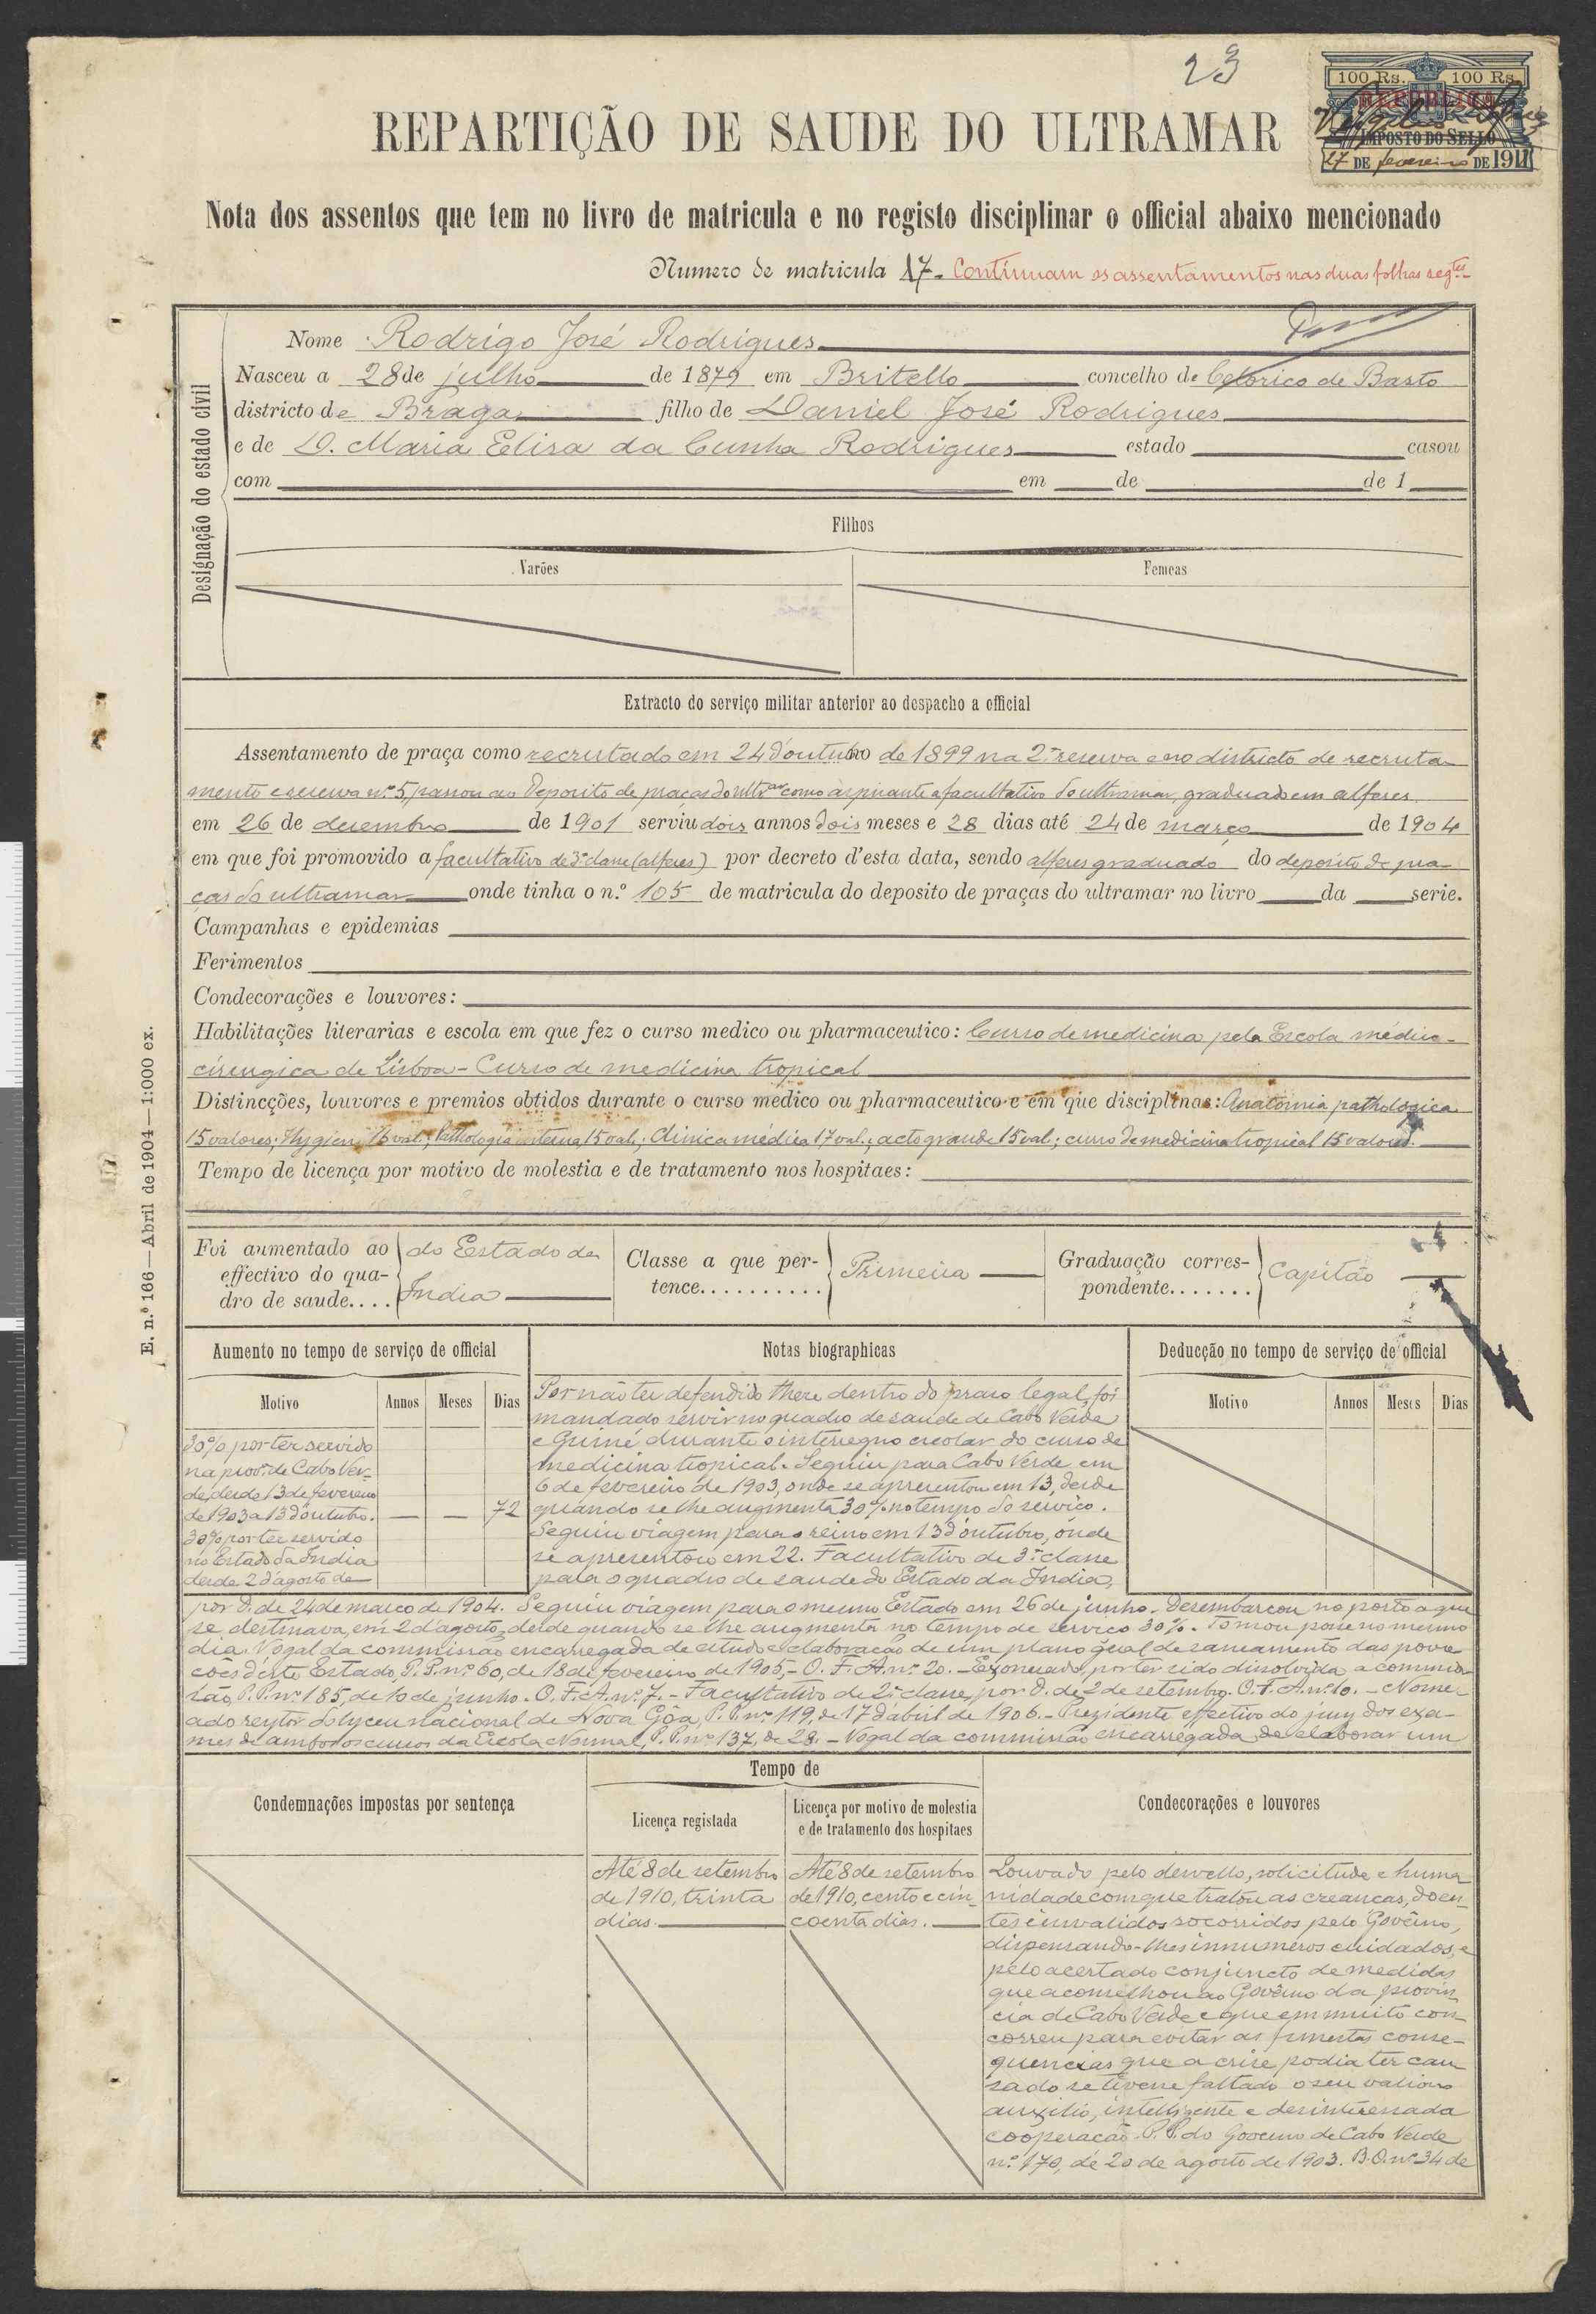 23
100 Rs. 100 Rs.
REPUBLICA
IMPOSTO DO SELLO
27 DE fevereiro DE 1911
REPARTIÇÃO DE SAUDE DO ULTRAMAR
Nota dos assentos que tem no livro de matricula e no registo disciplinar o official abaixo mencionado
Numero de matricula 17. Continuam os assentamentos nas duas folhas segtes
Designação do estado civil
Nome Rodrigo José Rodrigues
Nasceu a 28 de julho de 1879 em Britello concelho de Celorico de Basto
districto de Braga filho de Daniel José Rodrigues
e de D. Maria Elisa da Cunha Rodrigues estado casou
com em de de 1
Filhos
Varões Femeas
Extracto do serviço militar anterior ao despacho a official
Assentamento de praça como recrutado em 24 d'outubro de 1899 na 2ª reserva e no districto de recruta-
mento e reserva n.º 5, passou ao Deposito de praças do ultrar como aspirante a facultativo do ultramar, graduado em alferes
em 26 de dezembro de 1901 serviu dois annos dois meses e 28 dias até 24 de março de 1904
em que foi promovido a facultativo de 3ª classe (alferes) por decreto d'esta data, sendo alferes graduado do deposito de pra-
ças do ultramar onde tinha o n.º 105 de matricula do deposito de praças do ultramar no livro da serie.
Campanhas e epidemias
Ferimentos
Condecorações e louvores:
Habilitações literarias e escola em que fez o curso medico ou pharmaceutico: Curso de medicina pela Escola médico-
cirurgica de Lisboa - Curso de medicina tropical
Distincções, louvores e premios obtidos durante o curso medico ou pharmaceutico e em que disciplinas: Anatomia pathologica
15 valores; Hygiene 16 val.; Pathologia interna, 15 val.; Clinica médica 17 val.; acto grande 15 val.; curso de medicina tropical 15 valores.
Tempo de licença por motivo de molestia e de tratamento nos hospitaes:
E. n.º 166—Abril de 1904—1:000 ex.
Foi aumentado ao effectivo do qua-dro de saude.... do Estado da India
Classe a que per-tence.......... Primeira
Graduação corres-pondente....... Capitão
Aumento no tempo de serviço de official
Motivo Annos Meses Dias
30% por ter servido
na prov. de Cabo Ver-
de, desde 13 de fevereiro
de 1903 a 13 d'outubro. — — 72
30% por ter servido
no Estado da India
desde 2 d'agosto de
Notas biographicas
Por não ter defendido these dentro do prazo legal, foi
mandado servir no quadro de saude de Cabo Verde
e Guiné durante o interregno escolar do curso de
medicina tropical. Seguiu para Cabo Verde em
6 de fevereiro de 1903, onde se apresentou em 13, desde
quando se lhe augmenta 30% no tempo do serviço.
Seguiu viagem para o reino em 13 d'outubro, onde
se apresentou em 22. Facultativo de 3ª classe
para o quadro de saude do Estado da India,
Deducção no tempo de serviço de official
Motivo Annos Meses Dias
por D. de 24 de março de 1904. Seguiu viagem para o mesmo Estado em 26 de junho. Desembarcou no porto a que
se destinava, em 2 d'agosto, desde quando se lhe augmenta no tempo de serviço 30%. Tomou posse no mesmo
dia. Vogal da commissão encarregada de estudo e elaboração de um plano geral de saneamento das povoa-
ções d'este Estado, P.P. nº 60, de 18 de fevereiro de 1905, - O. F. A. nº 20. - Exonerado, por ter sido dissolvida a commis-
são, P.P. nº 185, de 10 de junho. O. F. A. nº 7. - Facultativo de 2ª classe, por D. de 2 de setembro. O. F. A. nº 10. - Nome-
ado reytor do lyceu nacional de Nova Gôa, P. P. nº 119, de 17 d'abril de 1906. - Prezidente effectivo do jury dos exa-
mes de ambos os cursos da Escola Normal, P. P. nº 137, de 28. - Vogal da commissão encarregada de elaborar um
Condemnações impostas por sentença
Tempo de
Licença registada
Até 8 de setembro
de 1910, trinta
dias.
Licença por motivo de molestia
e de tratamento dos hospitaes
Até 8 de setembro
de 1910, cento e cin-
coenta dias.
Condecorações e louvores
Louvado pelo desvello, solicitude e huma
nidade com que tratou as creanças, doen-
tes e invalidos socorridos pelo Govêrno,
dispensando-lhes innumeros cuidados, e
pelo acertado conjuncto de medidas
que aconselhou ao Govêrno da provin
cia de Cabo Verde e que em muito con-
correu para evitar as funestas conse-
quencias que a crise podia ter cau
sado se tivesse faltado o seu valioso
auxilio, intelligente e desinteressada
coòperação. P. P. do Governo de Cabo Verde
n.º 170, de 20 de agosto de 1903. B.O. nº 34 de